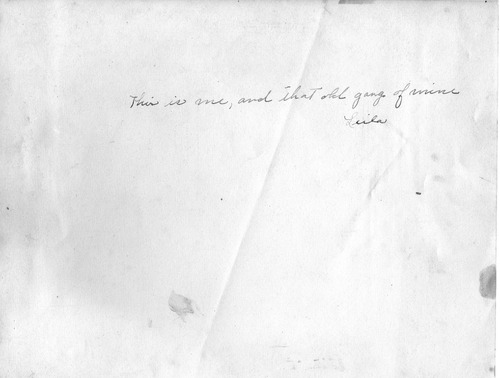 This is me, and that old gang of mine
Leila